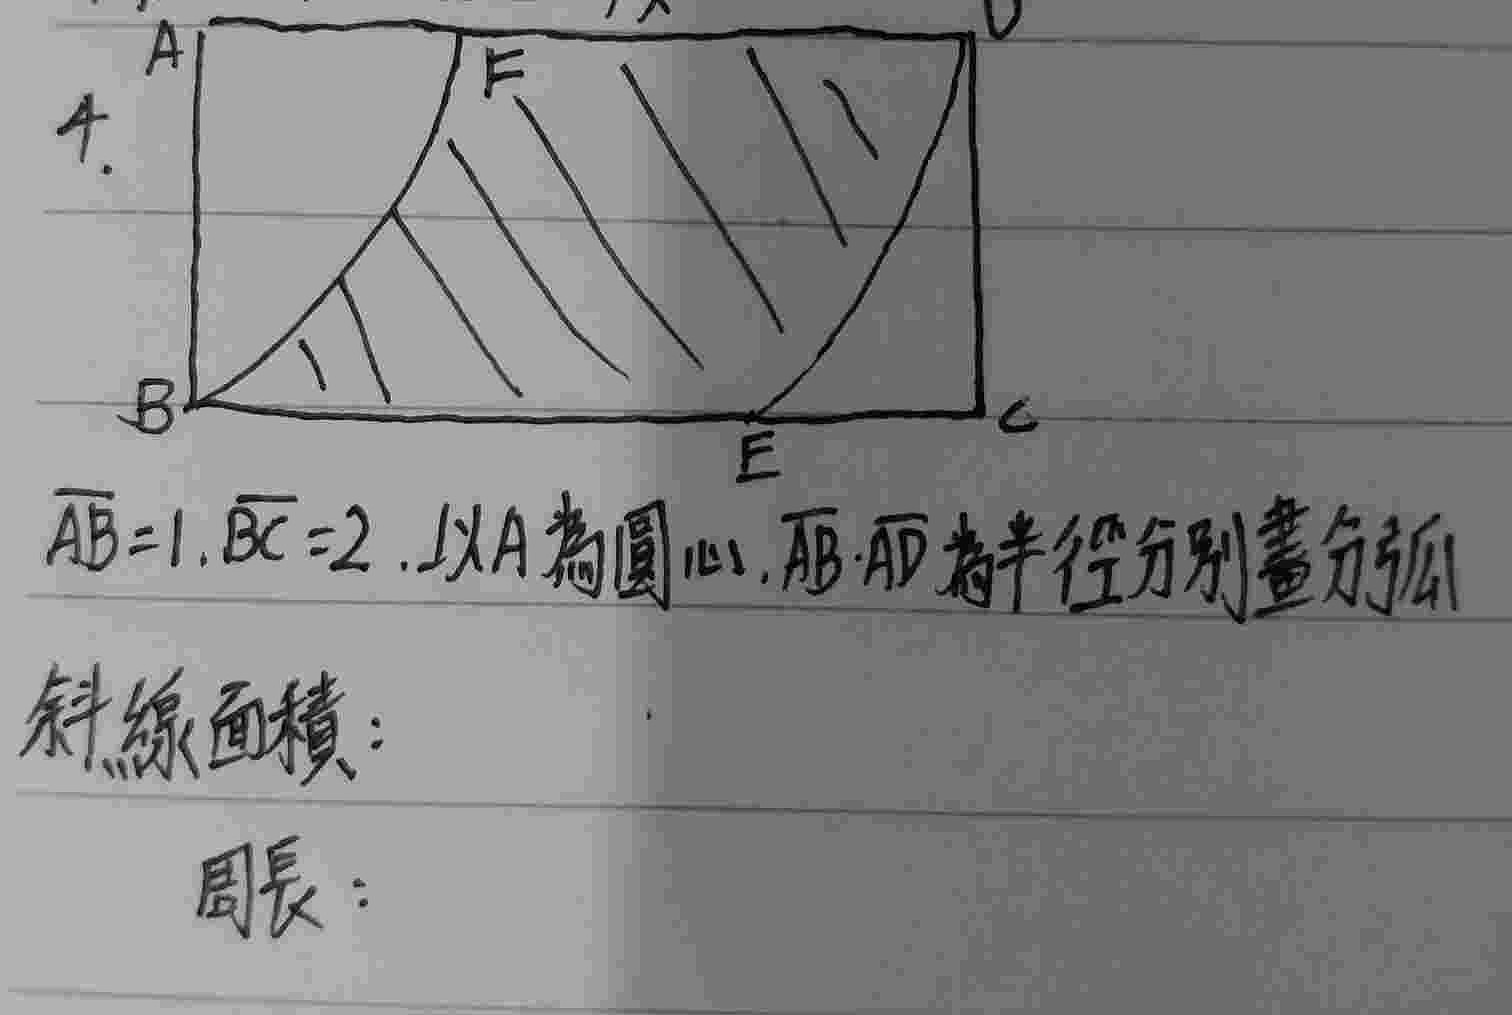 A
D
F
4.
B
E
C
AB=1.BC=2.以A為圓心.AB.AD為半徑分別畫分弧
斜線面積:
周長: